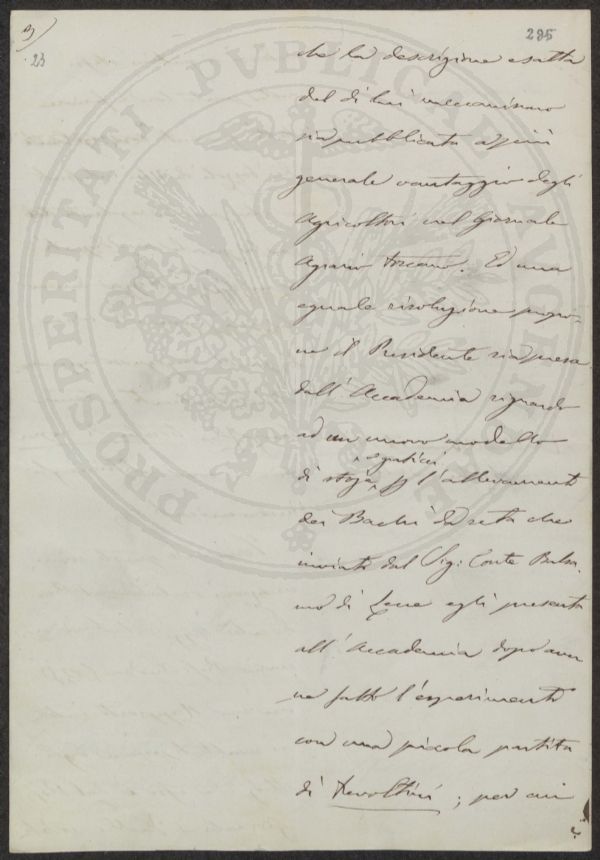 3)
23
295
che la descrizione esatta
del di lui meccanismo
sia pubblicata a più
generale vantaggio degli
Agricoltori nel Giornale
Agrario toscano. Ed una
eguale risoluzione propo-
ne il Presidente sia presa
dall'Accademia riguardo
ad un nuovo modello
di stoje p l'allevamento
dei Bachi da Seta che
inviato dal Sig: Conte Balsa-
mo di Lecce egli presenta
all'Accademia dopo aver
ne fatto l'esperimento
con una piccola partita
di Trevoltini; per cui
PROSPERITATI PVBLICAE AVGENDAE